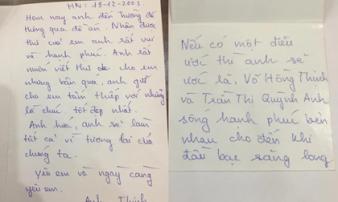 HN: 19-12-2003
Hôm nay anh đến trường để
thông qua đề án. Nhận được
thư của em anh rất vui
và hạnh phúc. Anh rất
muốn viết thư dài cho em
nhưng bận quá, anh gửi
cho em tấm thiếp với những
lời chúc tốt đẹp nhất.
Anh hứa, anh sẽ làm
tất cả vì tương lai của
chúng ta.
Yêu em và ngày càng
yêu em.
Anh Thịnh
Nếu có một điều
ước thì anh sẽ
ước là: Võ Hồng Thịnh
và Trần Thị Quỳnh Anh
sống hạnh phúc bên
nhau cho đến khi
đầu bạc răng long